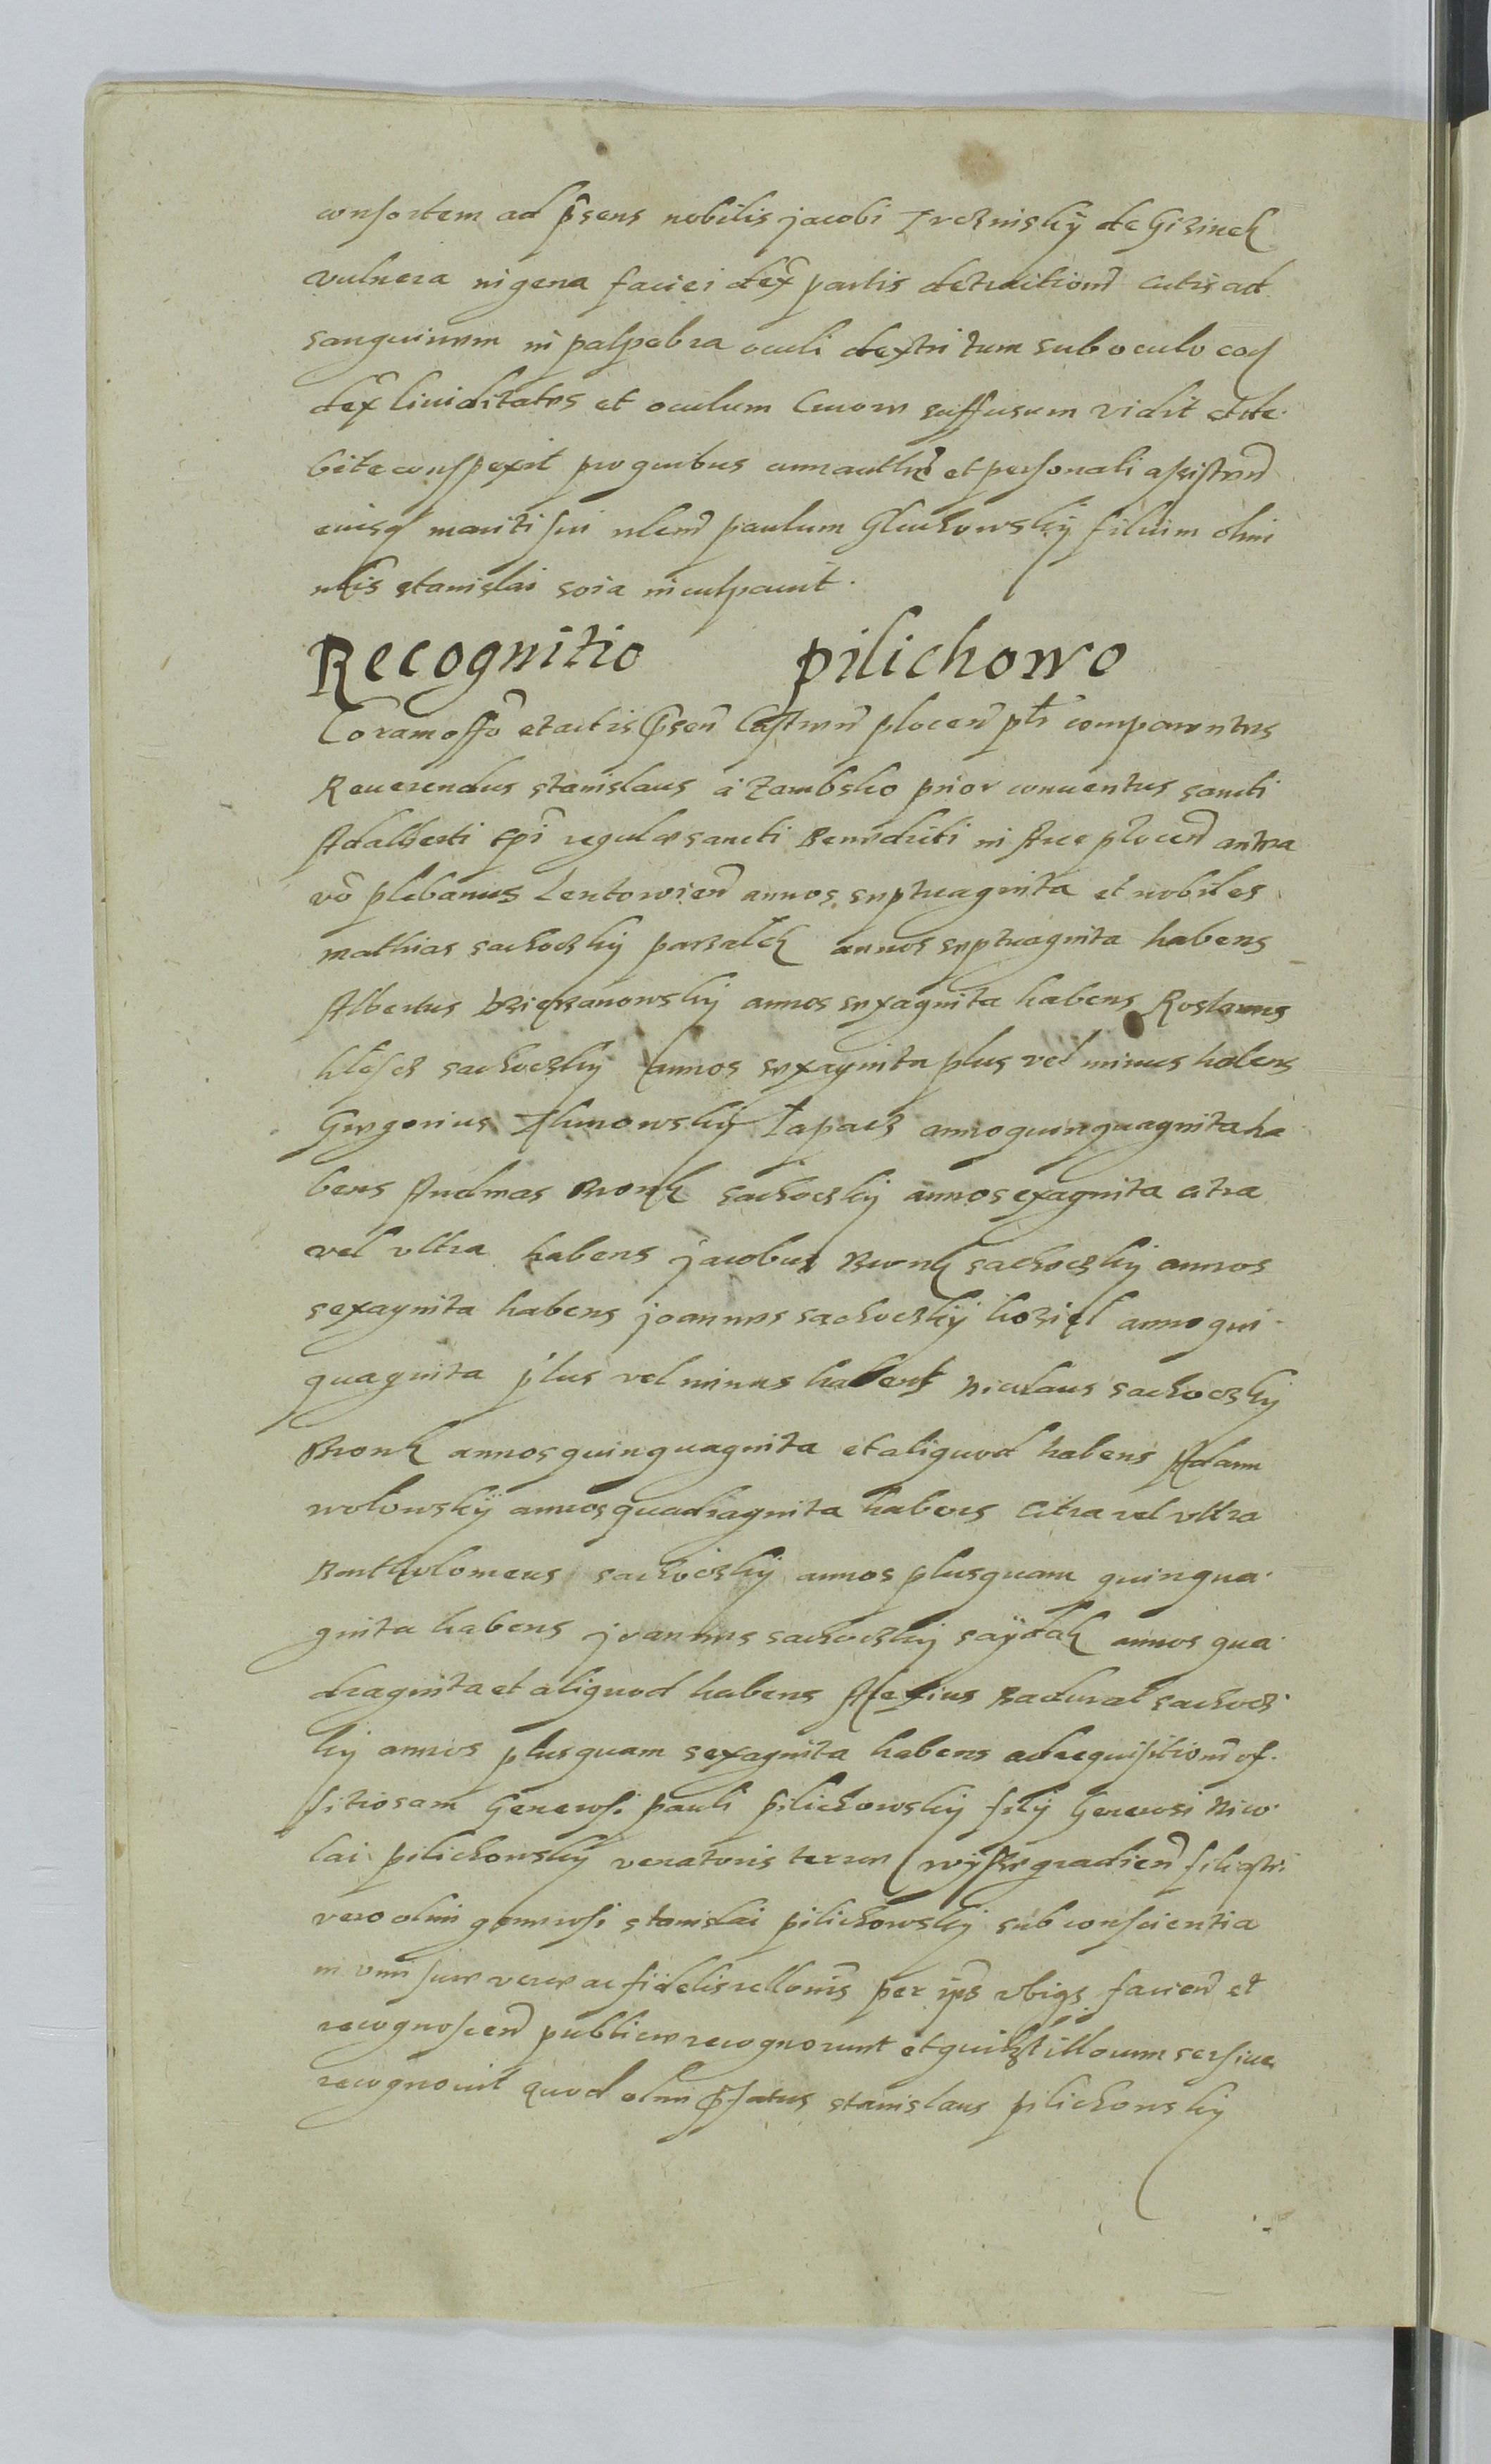 consortem ad p̃sens nobilis jacobi Trczinskÿ de Gizinek
vulnera in gena faciei dex̃ partis detractionẽ cutis ad
sanguinem in palpebra oculi dextri tum sub oculo eoq
dex̃ liuiditates et oculum cruore suffusum vidit et de
bite conspexit pro quibus cum auth̃e et personali assisteñ
eiusq̃ mariti sui nlem̃ paulum Gluchowskÿ filium olim
nlis̃ stanislai soia inculpauit.
Recognitio pilichowo
Coram offõ et actis p̃señ Castreñ ploceñ pl̃r comparentes
Reuerendus stanislaus a Zambsko prior conuentus sancti
Adalberti epĩ regulæ sancti Benedicti in Arce ploceñ antea
vẽ plebanus Lentowieñ annos septuaginta et nobiles
mathias sachoczkij parzalek annos septuaginta habens
Albertus Brzieganowskij annos sexaginta habens Roslanus
klesz sachoczkij annos sexaginta plus vel minus habens
Gregorius Thunowskÿ Lapacz anno quinquaginta ha
bens Andreas Bronk sachoczkij annos exaginta citra
vel vltra habens jacobus Bronk sachoczkij annos
sexaginta habens joannes sachoczkÿ koziel anno qui
quaginta plus vel minus habens Nicolaus sachoczkij
Bronk annos quinquaginta et aliquod habens Adam
wolowskÿ annos quadraginta habens citra vel vltra
Bartholomeus sachoczkij annos plusquam quinqua
ginta habens joannes sachoczkij saÿdak annos qua
draginta et aliquod habens Alexius Badurat sachocz
kij annos plusquam sexaginta habens ad requisitionẽ of
fitiosam Generosi pauli pilichowskij filij Generosi Nico
lai pilichowskij venatoris terræ wÿszegradieñ filiastri
vero olim generosi stanislai pilichowskij sub conscientia
in vim suæ veræ ac fidelis rellonis̃ per ips̃ vbiqs facieñ et
recognosceñ publice recognorunt et quilzt illorum sersiue
recognouit quod olim p̃fatus stanislaus pilichowskij